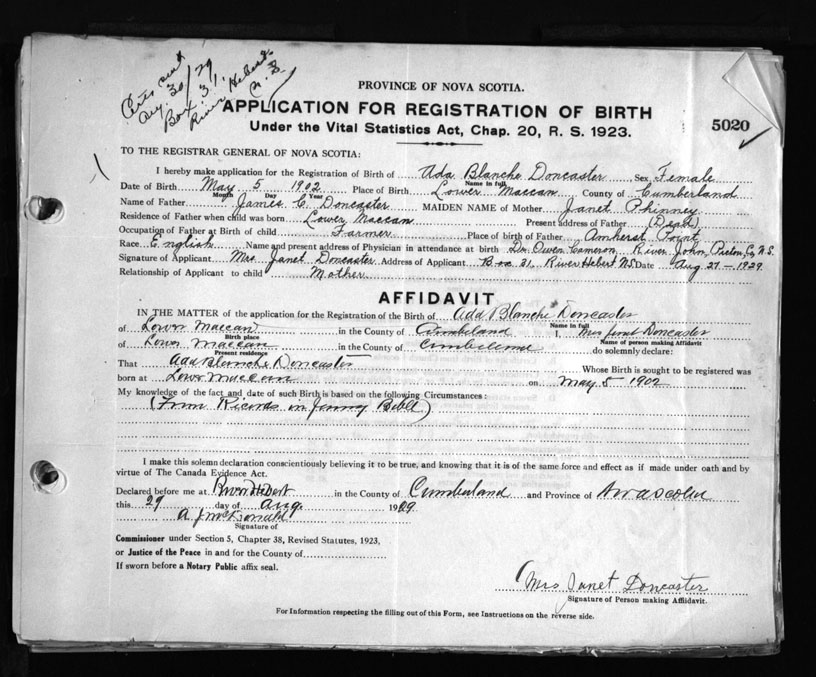 Certs sent
Aug 30/29
Box 31,
River Hebert
N.S.
PROVINCE OF NOVA SCOTIA.
APPLICATION FOR REGISTRATION OF BIRTH
5020
Under the Vital Statistics Act, Chap. 20, R. S. 1923.
TO THE REGISTRAR GENERAL OF NOVA SCOTIA:
I hereby make application for the Registration of Birth of Ada Blanche Doncaster Sex Female
Name in full
Date of Birth May 5 1902 Place of Birth Lower Maccan County of Cumberland
Month Day Year
Name of Father James C. Doncaster MAIDEN NAME of Mother Janet Phinney
Residence of Father when child was born Lower Maccan Present address of Father (Dead)
Occupation of Father at Birth of child Farmer Place of birth of Father Amherst Point
Race English Name and present address of Physician in attendance at birth Dr. Owen Cameron River John, Pictou Co, N.S.
Signature of Applicant Mrs Janet Doncaster Address of Applicant Box 31, River Hebert NS Date Aug 27 - 1929
Relationship of Applicant to child Mother
AFFIDAVIT
IN THE MATTER of the application for the Registration of the Birth of Ada Blanche Doncaster
Name in full
of Lower Maccan in the County of Cumberland I, Mrs Janet Doncaster
Birth place Name of person making Affidavit
of Lower Maccan in the County of do solemnly declare:
Present residence
That Ada Blanche Doncaster Whose Birth is sought to be registered was
born at Lower Maccan on May 5 1902
My knowledge of the fact and date of such Birth is based on the following Circumstances:
(From Records in Bible)
I make this solemn declaration conscientiously believing it to be true, and knowing that it is of the same force and effect as if made under oath and by
virtue of The Canada Evidence Act.
Declared before me at River Hebert in the County of Cumberland and Province of
this 29 day of Aug. 1929.
A J McDonald
Signature of
Commissioner under Section 5, Chapter 38, Revised Statutes, 1923,
or Justice of the Peace in and for the County of
If sworn before a Notary Public affix seal.
(Mrs Janet Doncaster
Signature of Person making Affidavit.
For Information respecting the filling out of this Form, see Instructions on the reverse side.